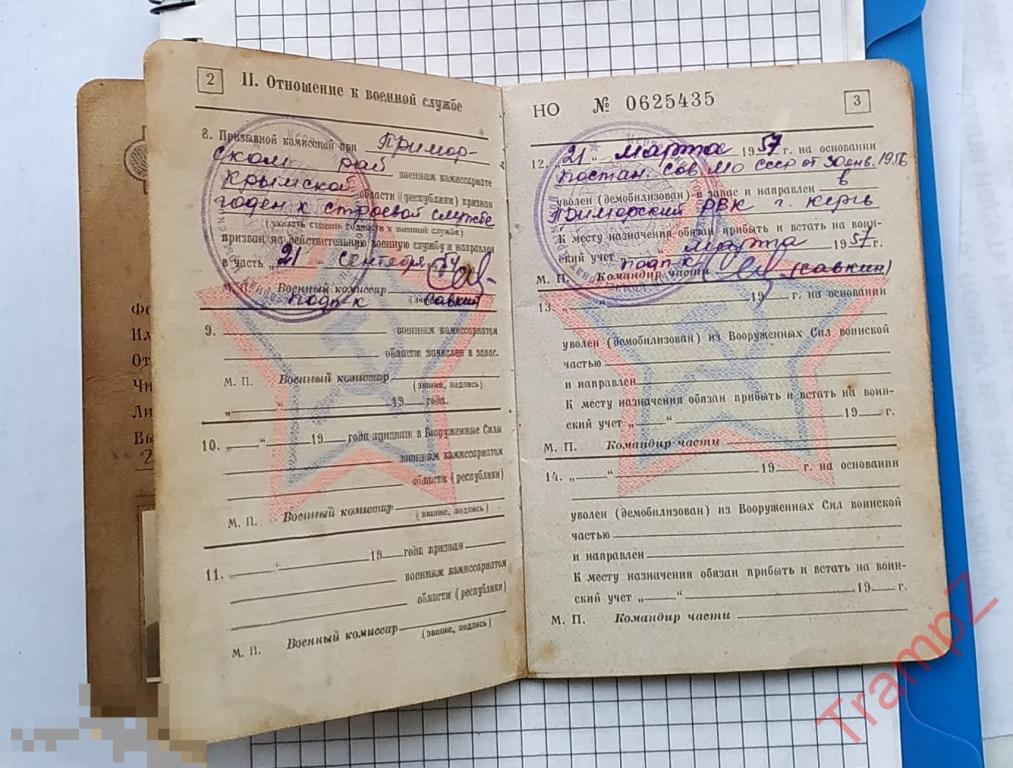 2 II. Отношение к военной службе
8. Призывной комиссией при Примор-
ском рай военном комиссариате
Крымской области (республики) признан
годен к строевой службе
(указать степень годности к военной службе)
призван на действительную военную службу и направлен
в часть „21“ сентября
М. П. Военный комиссар
подп-к Савкин
9. военным комиссариатом
области зачислен в запас.
М. П. Военный комиссар
(звание, подпись)
„ “ 19 года.
10. „ “ 19 года признан в Вооруженные Силы
военным комиссариатом
области (республики)
М. П. Военный комиссар
(звание, подпись)
11. 19 года призван
военным комиссариатом
области (республики)
М. П. Военный комиссар
(звание, подпись)
НО № 0625435 3
12. „21“ марта 1957 г. на основании
постан. Сов. Мо СССР от 30 янв. 1956
уволен (демобилизован) в запас и направлен в
Приморский РВК г. Керчь
К месту назначения обязан прибыть и встать на воин-
ский учет марта 1957 г.
подп-к
М. П. Командир части (Савкин)
13. „ “ 19 г. на основании
уволен (демобилизован) из Вооруженных Сил воинской
частью
и направлен
К месту назначения обязан прибыть и встать на воин-
ский учет „ “ 19 г.
М. П. Командир части
14. „ “ 19 г. на основании
уволен (демобилизован) из Вооруженных Сил воинской
частью
и направлен
К месту назначения обязан прибыть и встать на воин-
ский учет „ “ 19 г.
М. П. Командир части
Фа
От
Чи
Ли
Вы
TrampZ